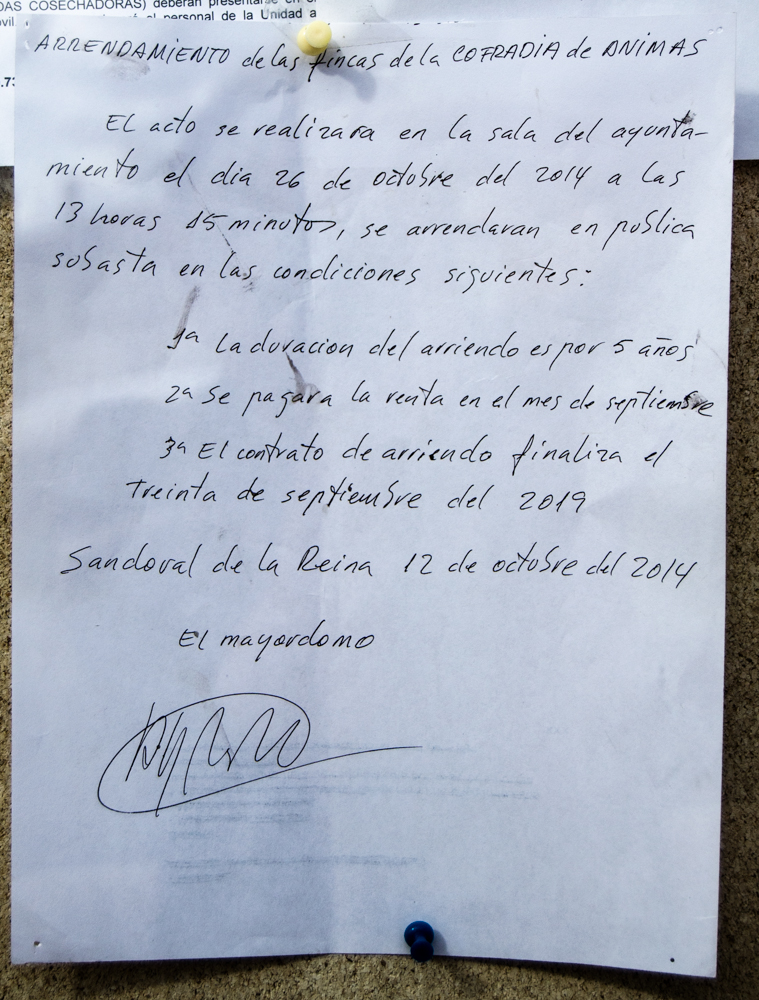 DAS COSECHADORAS) deberán presentarse en el
personal de la Unidad a
ARRENDAMIENTO de las fincas de la COFRADIA de ANIMAS
El acto se realizara en la sala del ayunta-
miento el dia 26 de octubre del 2014 a las
13 horas 15 minutos, se arrendaran en publica
subasta en las condiciones siguientes:
1ª La duracion del arriendo es por 5 años
2ª Se pagara la renta en el mes de septiembre
3ª El contrato de arriendo finaliza el
treinta de septiembre del 2019
Sandoval de la Reina 12 de octubre del 2014
El mayordomo